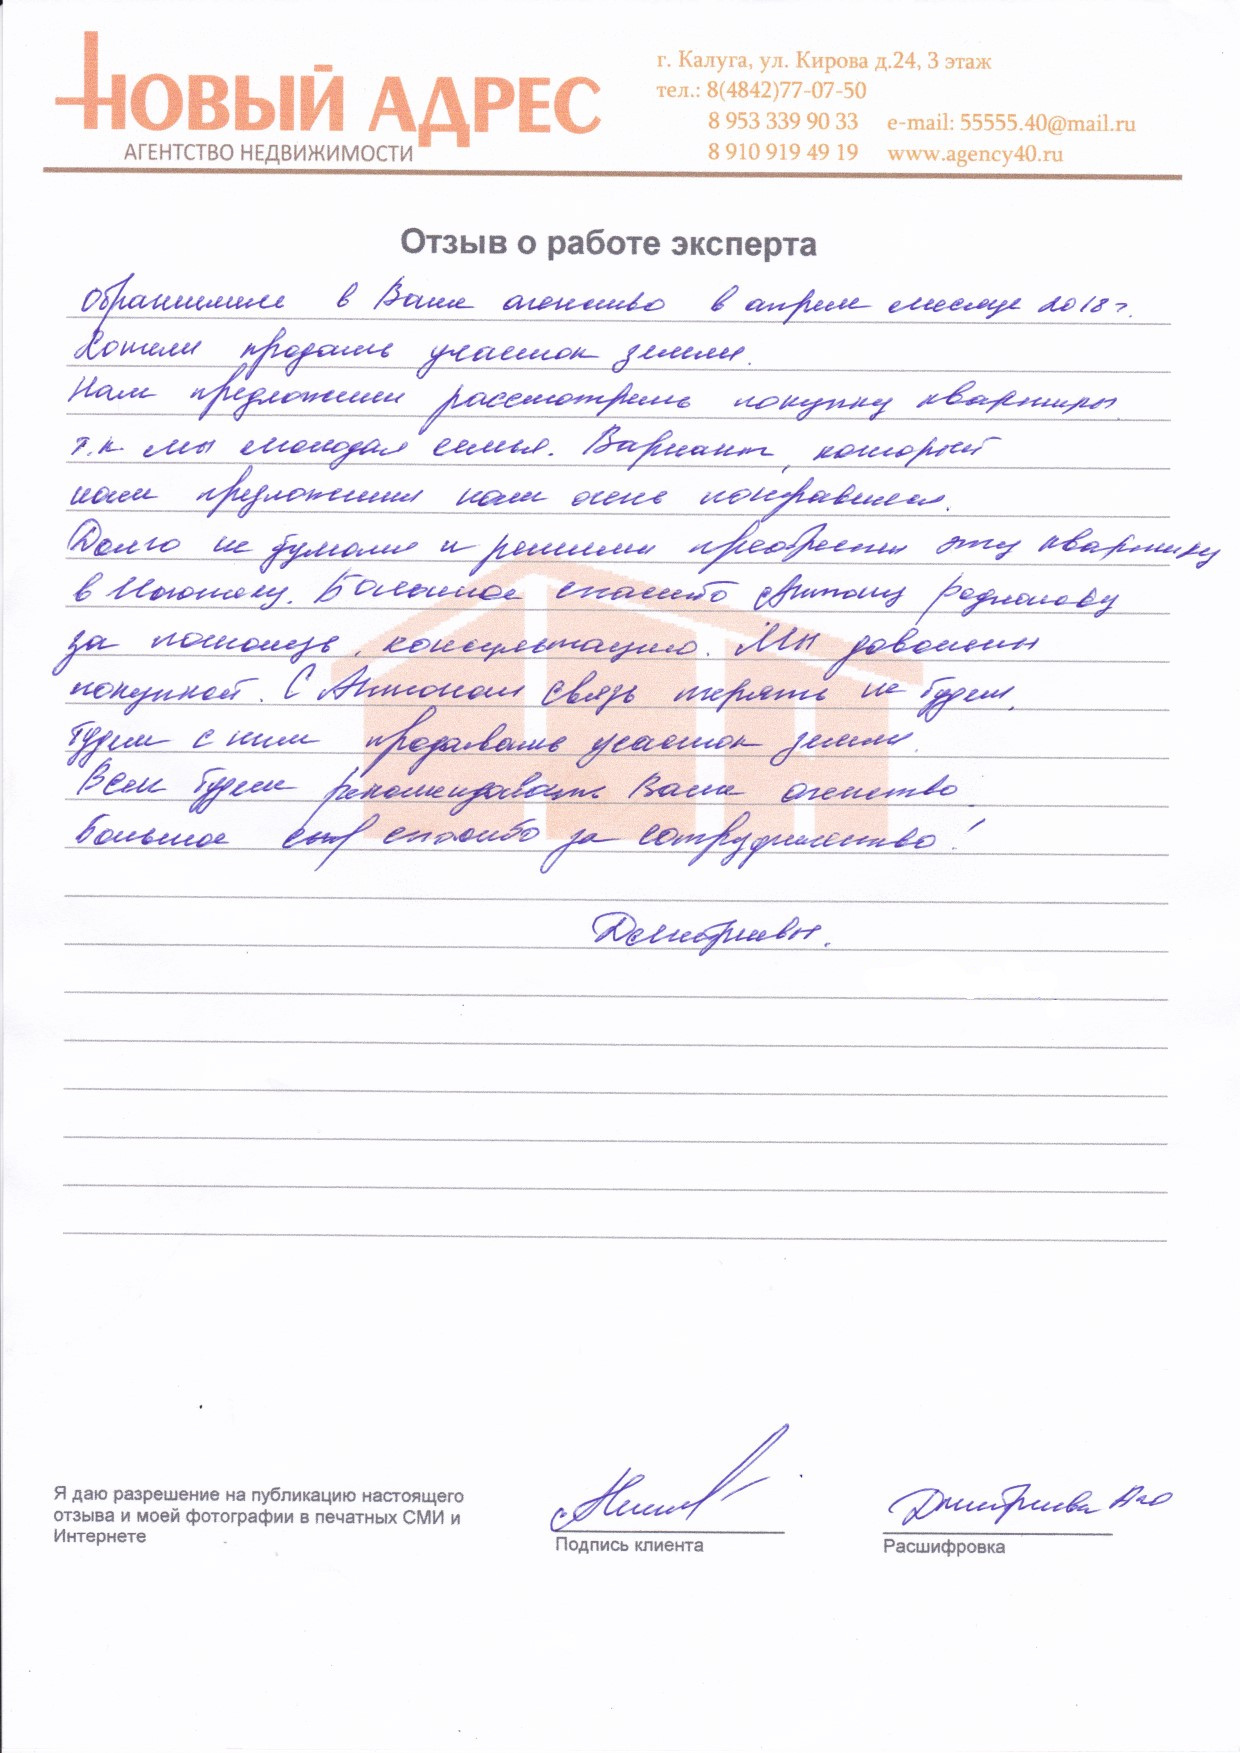 НОВЫЙ АДРЕС
АГЕНТСТВО НЕДВИЖИМОСТИ
г. Калуга, ул. Кирова д.24, 3 этаж
тел.: 8(4842)77-07-50
8 953 339 90 33 e-mail: 55555.40@mail.ru
8 910 919 49 19 www.agency40.ru
Отзыв о работе эксперта
Обратились в Ваше агенство в апреле месяце 2018 г.
Хотели продать участок земли.
Нам предложили рассмотреть покупку квартиры
т.к. мы молодая семья. Вариант, который
нам предложили нам очень понравился.
Долго не думали и решили преобрести эту квартиру
в Ипотеку. Большое спасибо Антону Родионову
за помощь, консультацию. Мы довольны
покупкой. С Антоном связь терять не будем,
будем с ним продавать участок земли.
Всем будем рекомендовать Ваше агенство.
Большое спасибо за сотрудничество!
Дмитриевы.
Я даю разрешение на публикацию настоящего
отзыва и моей фотографии в печатных СМИ и
Интернете
Подпись клиента
Дмитриева
Расшифровка